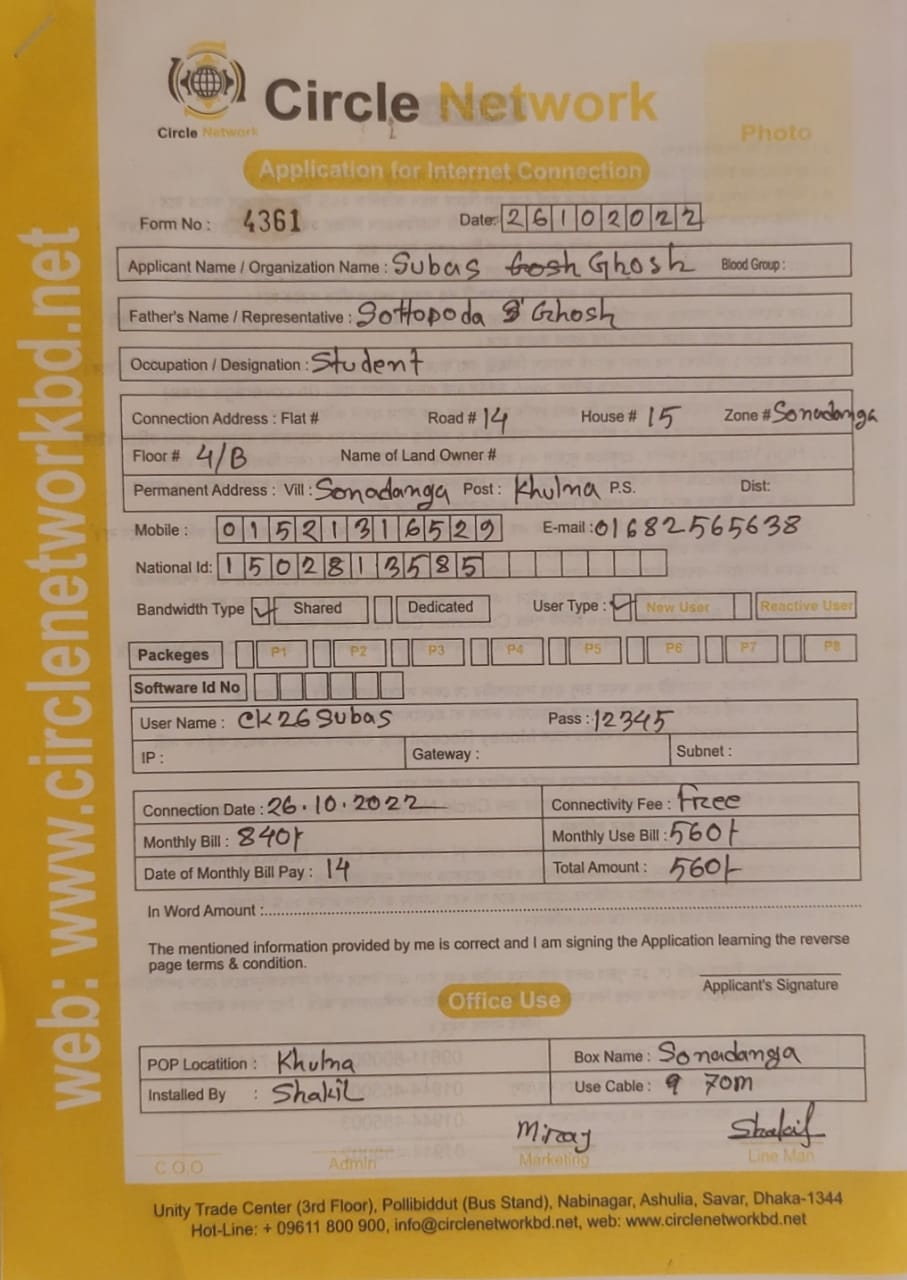 Circle Network
Circle Network
Photo
Application for Internet Connection
Form No : 4361 Date: 26102022
Applicant Name / Organization Name : Subas Gosh Ghosh Blood Group :
Father's Name / Representative : Sottopoda Ghosh
Occupation / Designation : Student
Connection Address : Flat # Road # 14 House # 15 Zone # Sonadanga
Floor # 4/B Name of Land Owner #
Permanent Address : Vill : Sonadanga Post : Khulna P.S. Dist:
Mobile : 01521316529 E-mail : 01682565638
National Id: 1502813585
Bandwidth Type ✓ Shared Dedicated User Type : ✓ New User Reactive User
Packeges P1 P2 P3 P4 P5 P6 P7 P8
Software Id No
User Name : CK26Subas Pass : 12345
IP : Gateway : Subnet :
Connection Date : 26.10.2022 Connectivity Fee : Free
Monthly Bill : 840/- Monthly Use Bill : 560/-
Date of Monthly Bill Pay : 14 Total Amount : 560/-
In Word Amount :
The mentioned information provided by me is correct and I am signing the Application learning the reverse
page terms & condition.
Applicant's Signature
Office Use
POP Locatition : Khulna Box Name : Sonadanga
Installed By : Shakil Use Cable : 70m
Miraj Shakil
C.O.O Admin Marketing Line Man
Unity Trade Center (3rd Floor), Pollibiddut (Bus Stand), Nabinagar, Ashulia, Savar, Dhaka-1344
Hot-Line: + 09611 800 900, info@circlenetworkbd.net, web: www.circlenetworkbd.net
web: www.circlenetworkbd.net